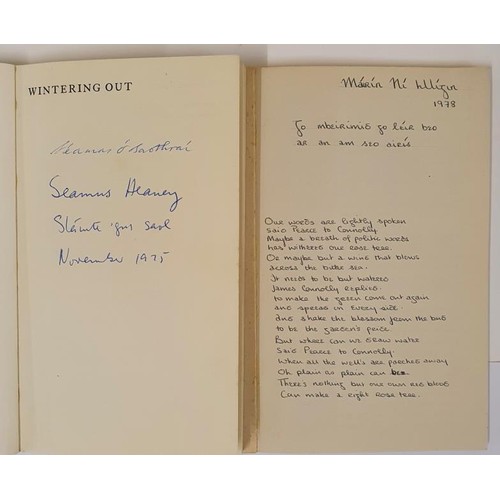 WINTERING OUT
Séamus Ó Saothraí
Seamus Heaney
Sláinte 'gus saol
November 1975
Máirín Ní
1978
Go mbeirimíd go léir beo
ar an am seo airís
Our words are lightly spoken
said Pearse to Connolly
Maybe a breath of politic words
has withered our rose tree.
Or maybe but a wind that blows
across the bitter sea.
It needs to be but watered
James Connolly replied.
to make the green come out again
and spread in every side.
and shake the blossom from the bud
to be the garden's pride.
But where can we draw water
Said Pearse to Connolly.
When all the well's are parched away
Oh plain as plain can be
There's nothing but our own red blood
Can make a right rose tree.